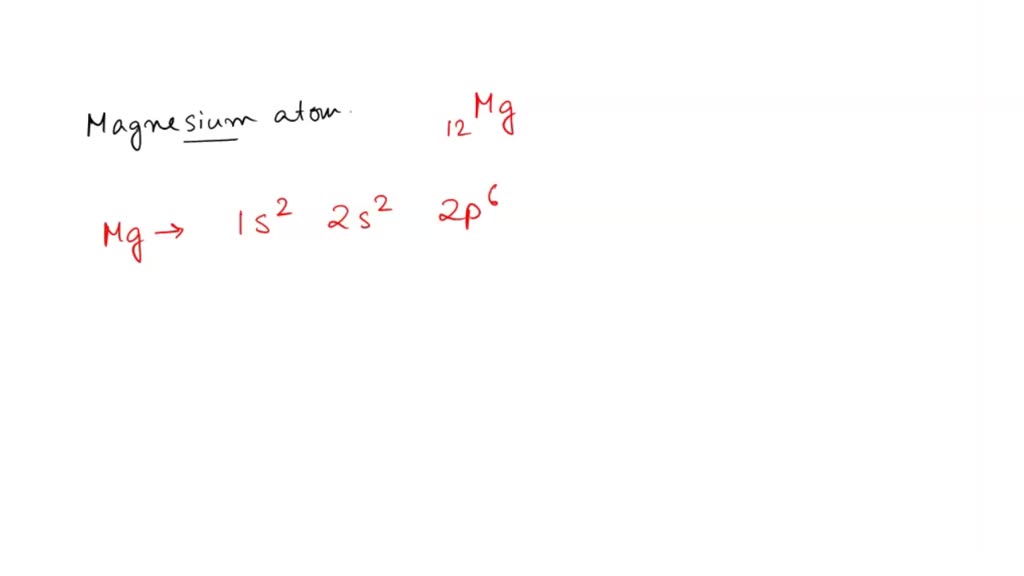 Magnesium atom. ₁₂Mg
Mg → 1s² 2s² 2p⁶